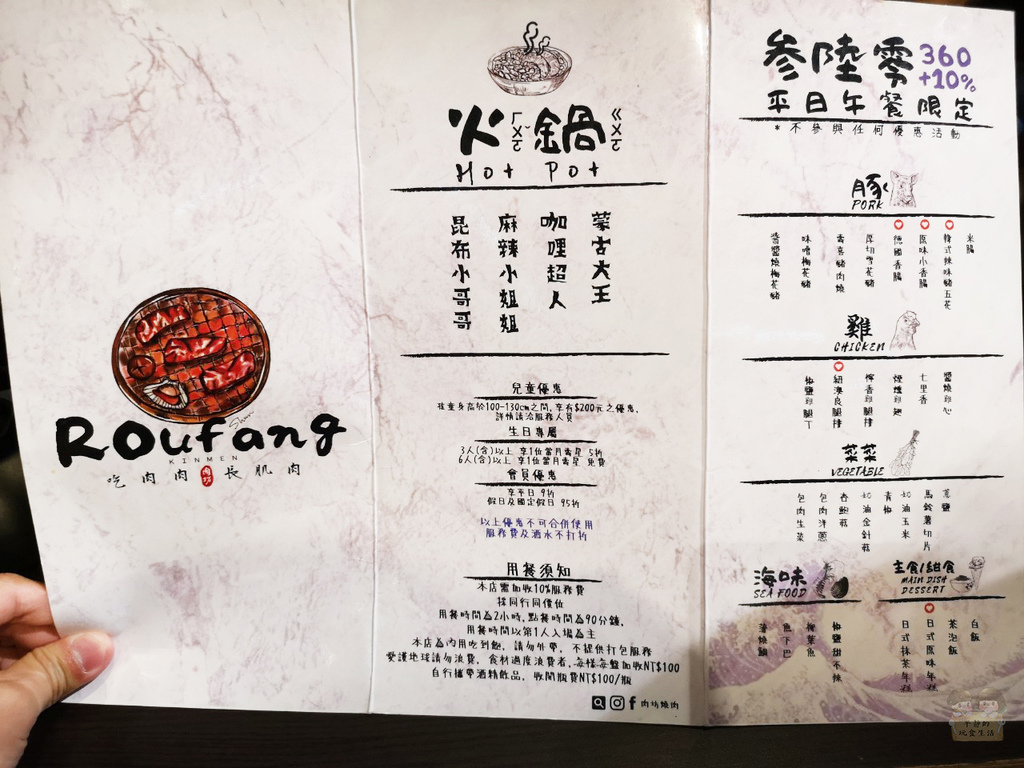 Roufang
Shun
KINMEN
吃肉肉 肉坊 長肌肉
火鍋
ㄏㄨㄛˇ ㄍㄨㄛ
Hot Pot
蒙古大王
咖哩超人
麻辣小姐姐
昆布小哥哥
兒童優惠
孩童身高於100-130cm之間,享有$200元之優惠,
詳情請洽服務人員
生日專屬
3人(含)以上 享1位當月壽星 5折
6人(含)以上 享1位當月壽星 免費
會員優惠
享平日 9折
假日及國定假日 95折
以上優惠不可合併使用
服務費及酒水不打折
用餐須知
本店需加收10%服務費
採同行同價位
用餐時間為2小時,點餐時間為90分鐘,
用餐時間以第1人入場為主
本店為內用吃到飽, 請勿外帶, 不提供打包服務
愛護地球請勿浪費, 食材過度浪費者,每樣每盤加收NT$100
自行攜帶酒精飲品, 收開瓶費NT$100/瓶
肉坊燒肉
參陸零 360
+10%
平日午餐限定
*不參與任何優惠活動
豚
PORK
米腸
韓式辣味豬五花
原味小香腸
德國香腸
厚切雪花豬
味噌梅花豬
醬醃燒梅花豬
雞
CHICKEN
醬燒雞心
七里香
煙燻雞翅
檸香雞腿排
紐澳良腿排
椒鹽雞腿丁
菜菜
VEGETABLE
蔥鹽
馬鈴薯切片
奶油玉米
青椒
奶油金針菇
杏鮑菇
包肉洋蔥
包肉生菜
海味
SEA FOOD
椒鹽甜不辣
柳葉魚
魚下巴
蒲燒鯛
主食/甜食
MAIN DISH
DESSERT
白飯
茶泡飯
日式原味年糕
日式抹茶年糕
玩食生活